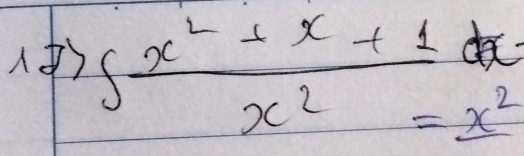 1) ∫ (x² + x + 1)/x² dx
= x²